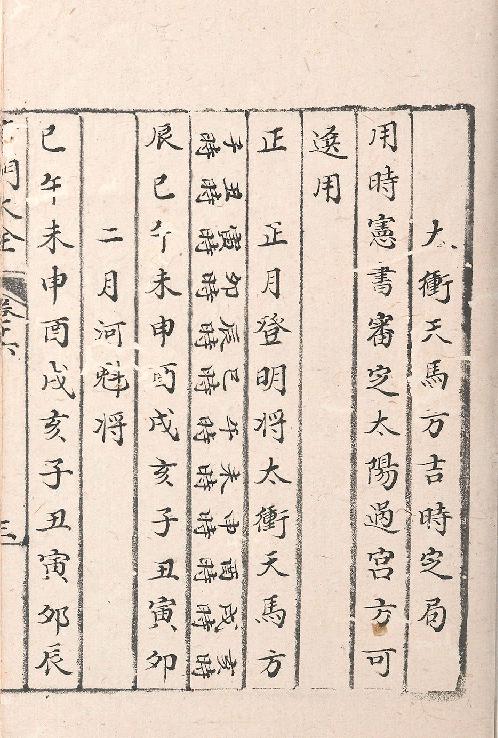 太衝天馬方吉時定局
用時憲書審定太陽過宮方可
選用
正　正月登明將太衝天馬方
子時 丑時 寅時 卯時 辰時 巳時 午時 未時 申時 酉時 戌時 亥時
辰巳午未申酉戌亥子丑寅卯
二月河魁將
巳午未申酉戌亥子丑寅卯辰
門大全 卷 三